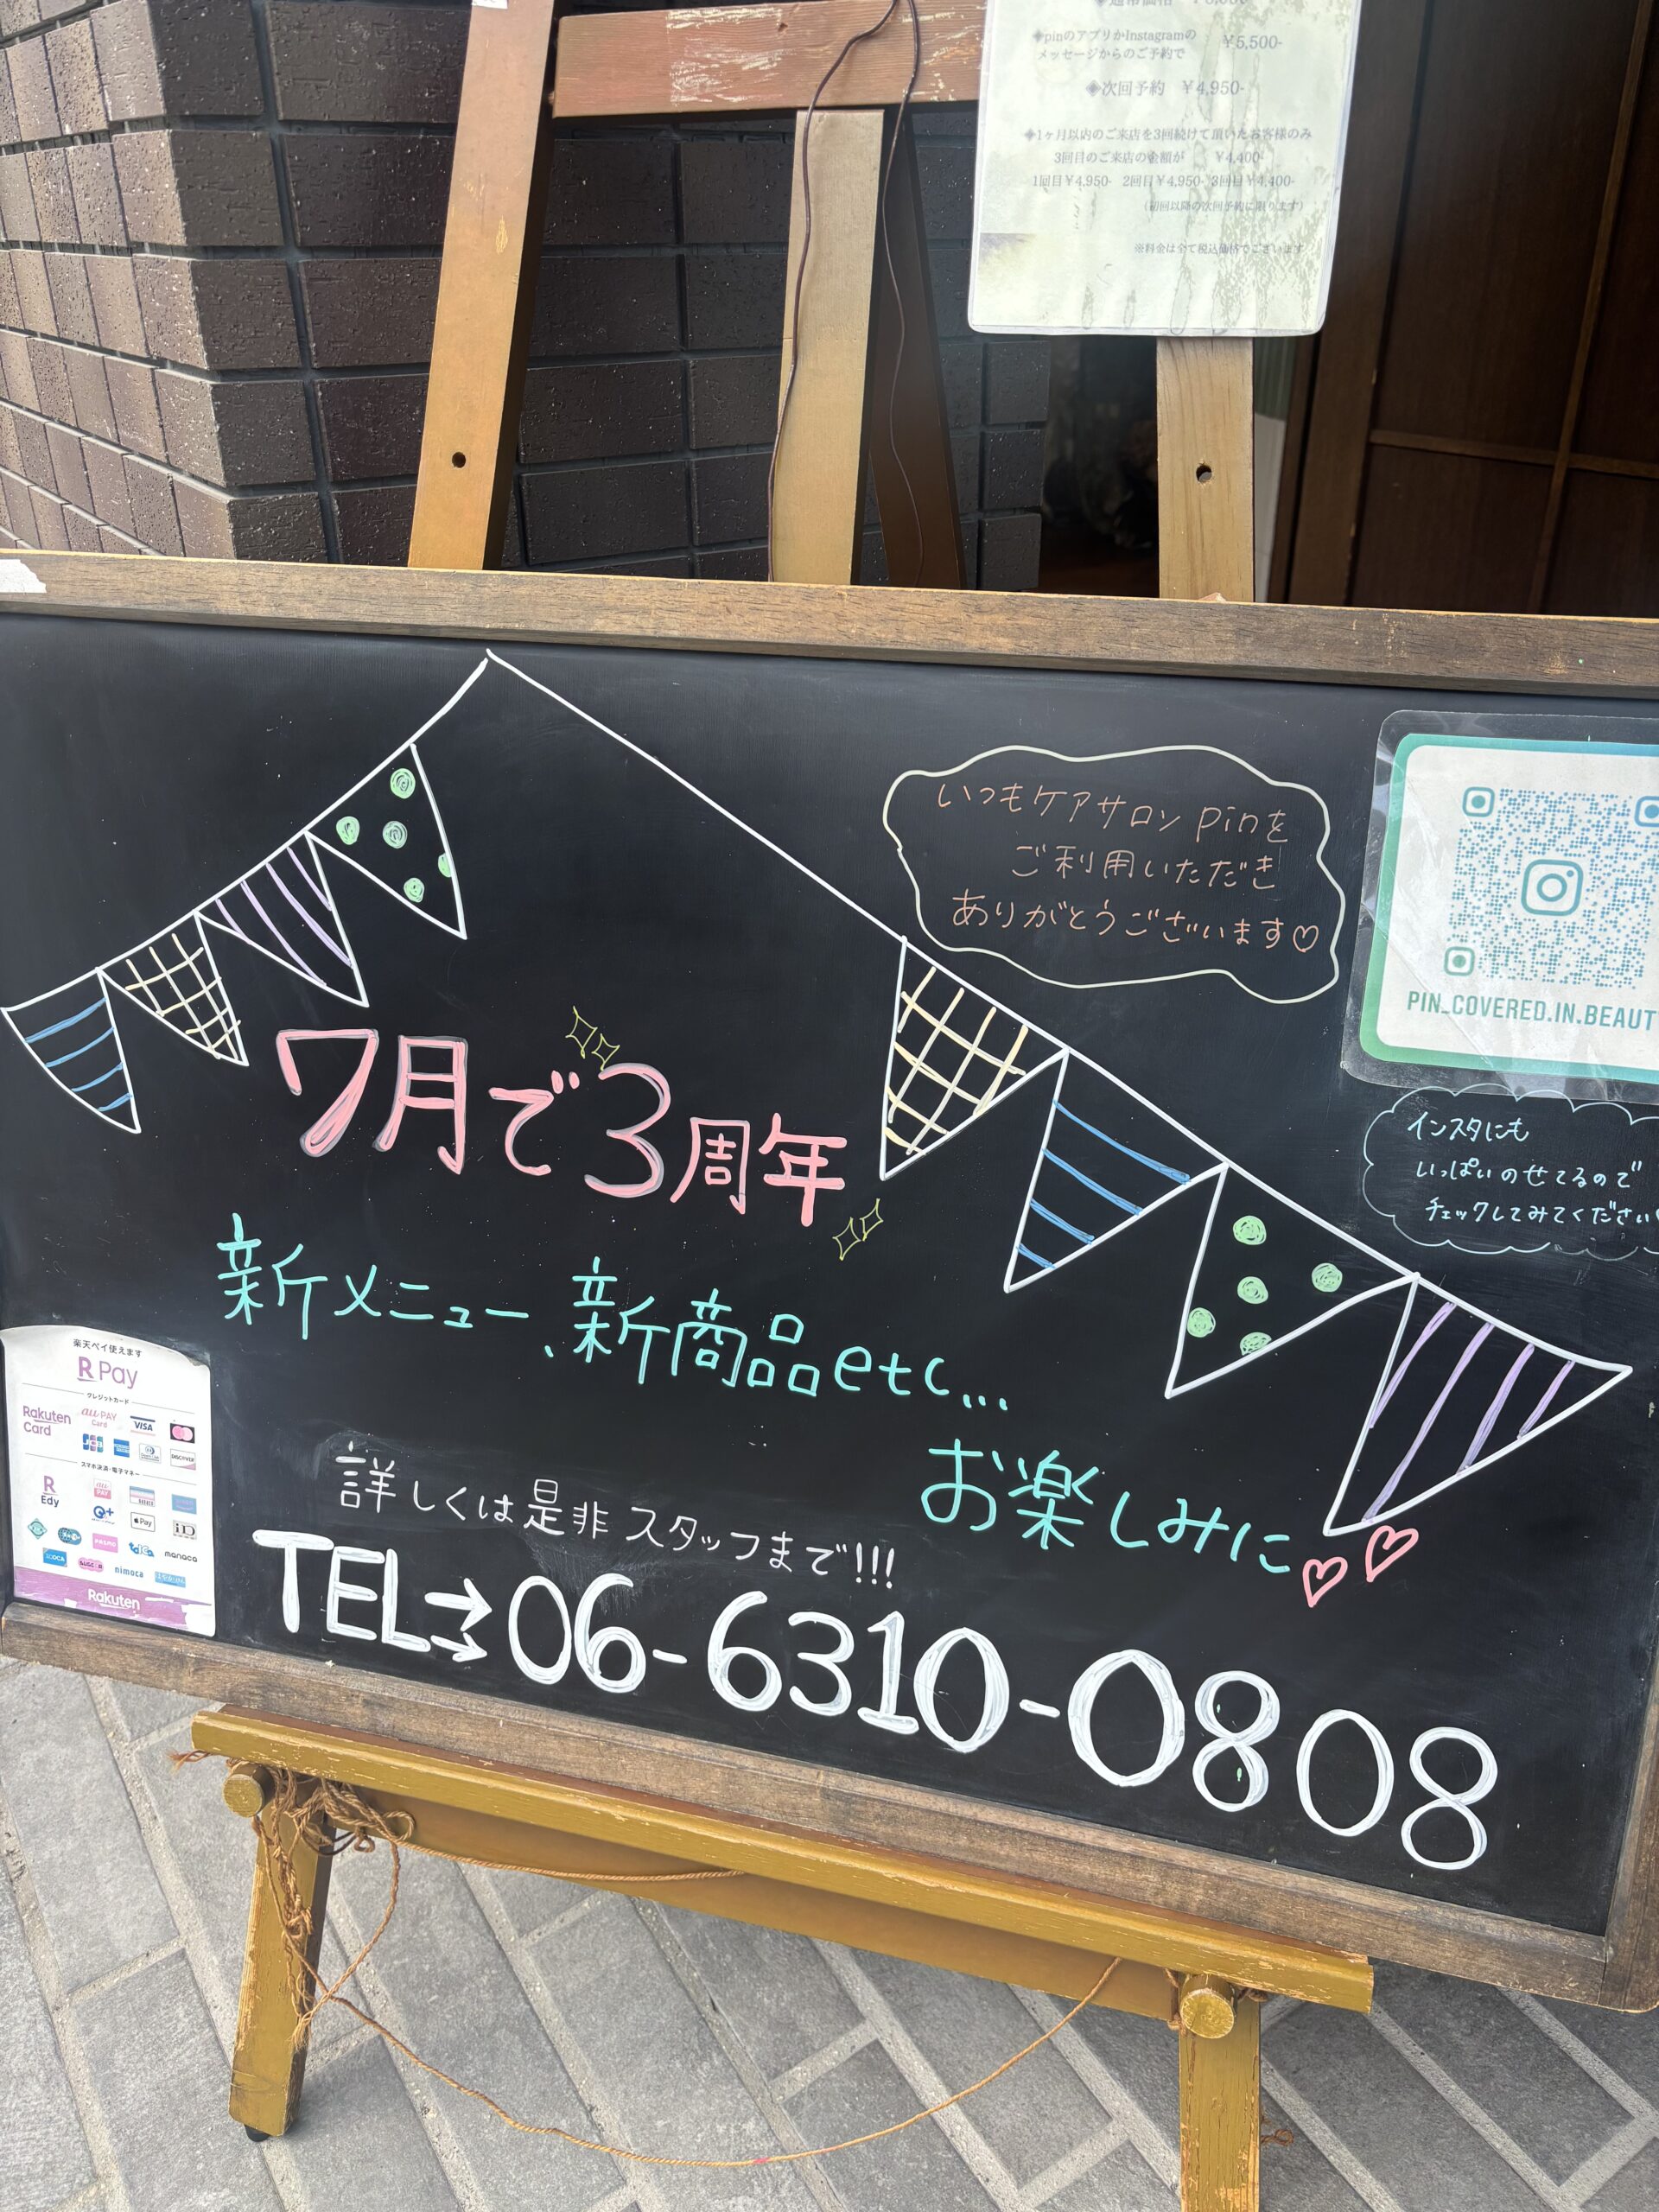 ◈pinのアプリかInstagramの
メッセージからのご予約で ¥5,500-
◈次回予約 ¥4,950-
◈1ヶ月以内のご来店を3回続けて頂いたお客様のみ
3回目のご来店の金額が ¥4,400-
1回目¥4,950- 2回目¥4,950- 3回目¥4,400-
(初回以降の次回予約に限ります)
※料金は全て税込価格でございます
いつもケアサロンpinを
ご利用いただき
ありがとうございます♡
PIN_COVERED.IN.BEAUT
インスタにも
いっぱいのせてるので
チェックしてみてください
7月で3周年
新メニュー、新商品etc...
お楽しみに♡♡
詳しくは是非スタッフまで!!!
TEL→06-6310-0808
楽天ペイ使えます
R Pay
クレジットカード
Rakuten Card
au PAY Card
VISA
JCB
DISCOVER
スマホ決済・電子マネー
R Edy
au PAY
Pay
iD
PASMO
manaca
ICOCA
nimoca
Rakuten